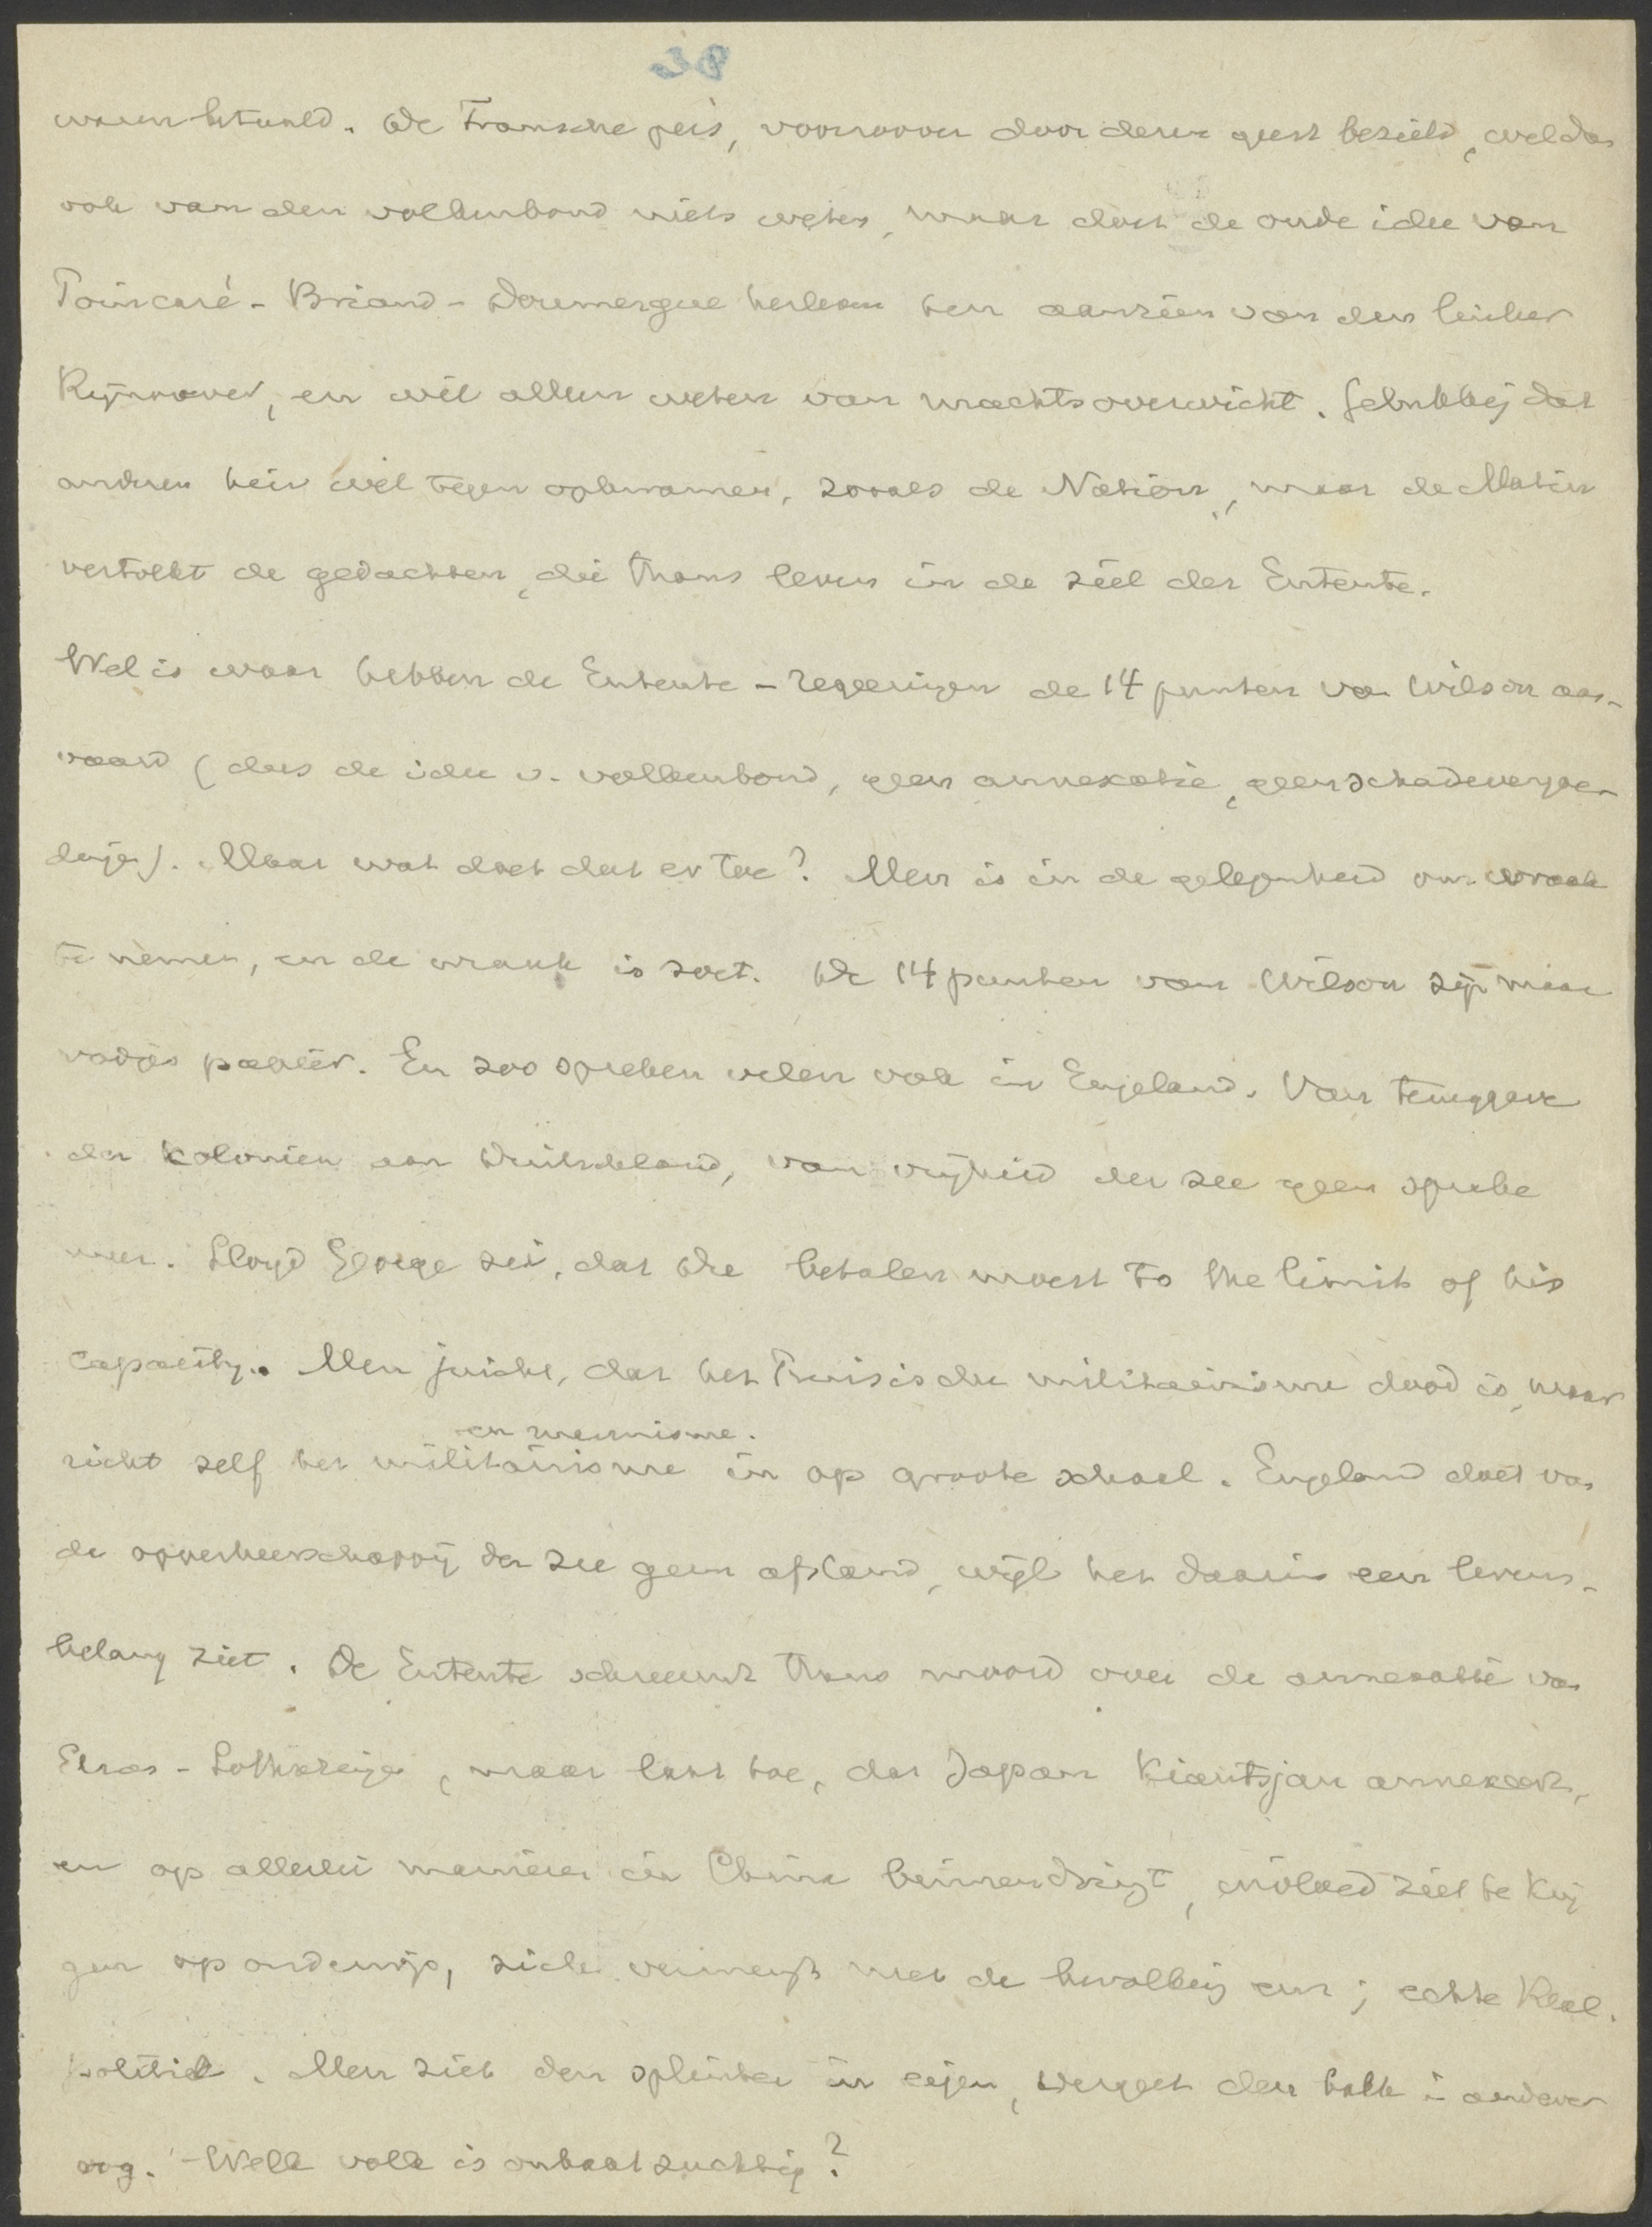 waren betaald. De Fransche pers, voorover door deze geest bezield, wil dan
ook van den volkenbond niets weten, maar doet de oude idee van
Poincaré - Briand - Doumergue herleven ten aanzien van den linker
Rijnoever, en wil alleen weten van machtsoverwicht. Gelukkig dat
anderen hier wel tegen opkwamen, zooals de Nation, maar de Matin
vertolkt de gedachten, die thans leven in de ziel der Entente.
Wel is waar hebben de Entente-regeeringen de 14 punten van Wilson aan-
vaard (dus de idee v. volkenbond, geen annexatie, geen schadevergoe-
dingen). Maar wat doet dat er toe? Men is in de gelegenheid om wraak
te nemen, en de wraak is zoet. De 14 punten van Wilson zijn maar
vodjes papier. En zoo spreken velen ook in Engeland. Van teruggave
der koloniën aan Duitschland, van vrijheid der zee geen sprake
meer. Lloyd George zei, dat Die betalen moest to the limit of his
capacity. Men juicht, dat het Pruisische militairisme dood is, maar
en marinisme.
richt zelf het militairisme in op groote schaal. Engeland doet van
de opperheerschappij der zee geen afstand, wijl het daarin een levens-
belang ziet. De Entente schreeuwt thans moord over de annexatie van
Elzas-Lotharingen, maar laat toe, dat Japan Kiautsjau annexeert,
en op allerlei manieren in China binnendringt, invloed ziet te krij
gen op onderwijs, zich vermengt met de bevolking enz; echte Real.
politiek. Men ziet den splinter in eigen, vergeet den balk in anderer
oog. Welk volk is onbaatzuchtig?